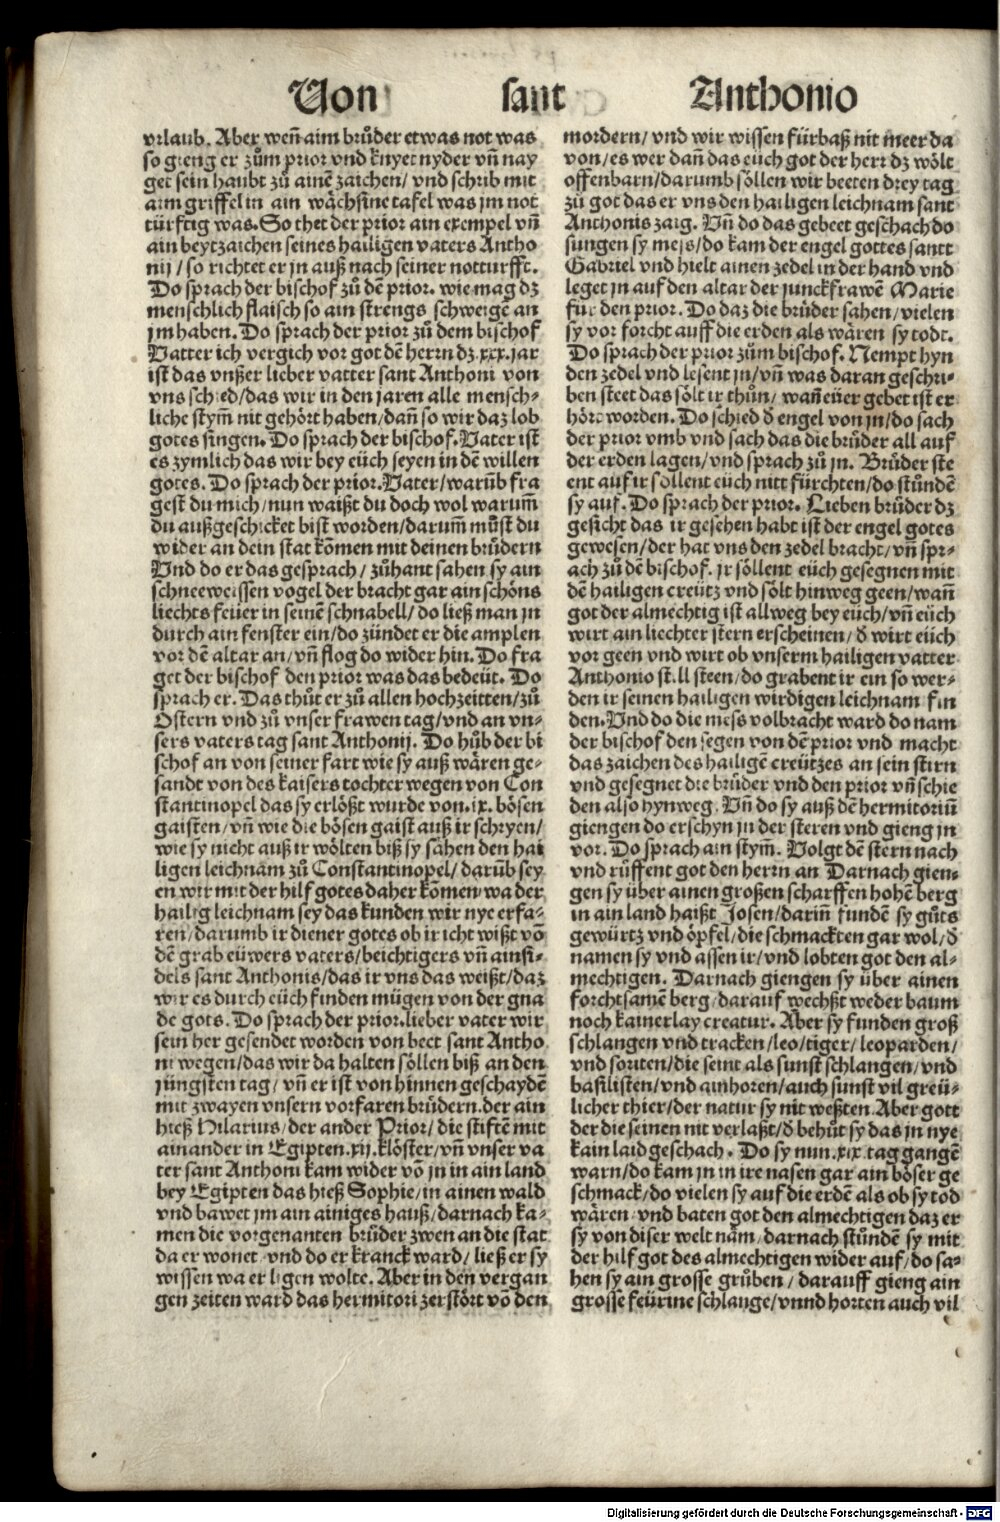 Von sant Anthonio
vrlaub. Aber weñ aim brůder etwas not was
so gieng er zům prior vnd knyet nyder vñ nay
get sein haubt zů ainē zaichen/ vnd schrib mit
aim griffel in ain wächsine tafel was jm not
türftig was. So thet der prior ain exempel vñ
ain beytzaichen seines hailigen vaters Antho
nij / so richtet er jn auß nach seiner notturfft.
Do sprach der bischof zů dē prior. wie mag dz
menschlich flaisch so ain strengs schweigē an
jm haben. Do sprach der prior zů dem bischof
Vatter ich vergich vor got dē herrn dz .xxx. jar
ist das vnßer lieber vatter sant Anthoni von
vns schied/das wir in den jaren alle mensch-
liche stym̄ nit gehört haben/dañ so wir daz lob
gotes singen. Do sprach der bischof. Vater ist
es zymlich das wir bey eüch seyen in dē willen
gotes. Do sprach der prior. Vater/warūb fra
gest du mich/nun waißt du doch wol warum̄
du außgeschicket bist worden/darum̄ můst du
wider an dein stat kōmen mit deinen brüdern
Vnd do er das gesprach / zůhant sahen sy ain
schneeweissen vogel der bracht gar ain schöns
liechts feüer in seinē schnabell/do ließ man jn
durch ain fenster ein/do zündet er die amplen
vor dē altar an/vñ flog do wider hin. Do fra
get der bischof den prior was das bedeüt. Do
sprach er. Das thůt er zů allen hochzeitten/zů
Ostern vnd zů vnser frawen tag/vnd an vn-
sers vaters tag sant Anthonij. Do hůb der bi
schof an von seiner fart wie sy auß wären ge-
sandt von des kaisers tochter wegen von Con
stantinopel das sy erlößt wurde von .ix. bösen
gaisten/vñ wie die bösen gaist auß ir schryen/
wie sy nicht auß ir wölten biß sy sähen den hai
ligen leichnam zů Constantinopel/ darūb sey
en wir mit der hilf gotes daher kōmen/wa der
hailig leichnam sey das kunden wir nye erfa-
ren/darumb ir diener gotes ob ir icht wißt vō
dē grab eüwers vaters/beichtigers vñ ainsi-
dels sant Anthonis/das ir vns das weißt/daz
wir es durch eüch finden mügen von der gna
de gots. Do sprach der prior. lieber vater wir
sein her gesendet worden von bect sant Antho
ni wegen/das wir da halten söllen biß an den
jüngsten tag/ vñ er ist von hinnen geschaydē
mit zwayen vnsern vorfaren brüdern. der ain
hieß Hilarius/der ander Prior/ die stiftē mit
ainander in Egipten .xij. klöster/vñ vnser va
ter sant Anthoni kam wider vō jn in ain land
bey Egipten das hieß Sophie/in ainen wald
vnd bawet jm ain ainiges hauß/darnach ka-
men die vorgenanten brüder zwen an die stat
da er wonet/vnd do er kranck ward/ließ er sy
wissen wa er ligen wolte. Aber in den vergan
gen zeiten ward das hermitori zerstört vō den
mordern/ vnd wir wissen fürbaß nit meer da
von/es wer dañ das eüch got der herr dz wölt
offenbarn/darumb söllen wir beeten drey tag
zů got das er vns den hailigen leichnam sant
Anthonis zaig. Vñ do das gebeet geschach do
sungen sy mess/do kam der engel gottes santt
Gabriel vnd hielt ainen zedel in der hand vnd
leget jn auf den altar der junckfrawē Marie
für den prior. Do daz die brüder sahen/vielen
sy vor forcht auff die erden als wären sy todt.
Do sprach der prior zům bischof. Nempt hyn
den zedel vnd lesent jn/vñ was daran geschri-
ben steet das sölt ir thůn/ wañ eüer gebet ist er
höret worden. Do schied ð engel von jn/do sach
der prior vmb vnd sach das die brüder all auf
der erden lagen/vnd sprach zů jn. Brüder ste
ent auf ir söllent eüch nitt fürchten/do stůndē
sy auf. Do sprach der prior. Lieben brüder dz
gesicht das ir gesehen habt ist der engel gotes
gewesen/der hat vns den zedel bracht/vñ spr-
ach zů dē bischof. ir söllent eüch gesegnen mit
dē hailigen creütz vnd sölt hinweg geen/wañ
got der almechtig ist allweg bey eüch/vñ eüch
wirt ain liechter stern erscheinen/ ð wirt eüch
vor geen vnd wirt ob vnserm hailigen vatter
Anthonio still steen/do grabent ir ein so wer-
den ir seinen hailigen wirdigen leichnam fin
den. Vnd do die mess volbracht ward do nam
der bischof den segen von dē prior vnd macht
das zaichen des hailigē creützes an sein stirn
vnd gesegnet die brüder vnd den prior vñ schie
den also hynweg. Vñ do sy auß dē hermitoriū
giengen do erschyn jn der steren vnd gieng jn
vor. Do sprach ain stym̄. Volgt dē stern nach
vnd rüffent got den herrn an Darnach gien-
gen sy über ainen großen scharffen hohē berg
in ain land haißt Josen/dariñ fundē sy gůts
gewürtz vnd öpfel/die schmackten gar wol/ð
namen sy vnd assen ir/vnd lobten got den al-
mechtigen. Darnach giengen sy über ainen
forchtsamē berg/darauf wechßt weder baum
noch kainerlay creatur. Aber sy funden groß
schlangen vnd tracken/leo/tiger/ leoparden/
vnd soriten/die seint als sunst schlangen/vnd
basilisten/vnd ainhoren/auch sunst vil greü-
licher thier/der natur sy nit weßten. Aber gott
der die seinen nit verlaßt/ð behůt sy das jn nye
kain laid geschach. Do sy nun .xix. tag gangē
warn/do kam jn in ire nasen gar ain böser ge
schmack/do vielen sy auf die erdē als ob sy tod
wären/vnd baten got den almechtigen daz er
sy von diser welt näm/darnach stündē sy mit
der hilf got des almechtigen wider auf/do sa-
hen sy ain grosse grůben / darauff gieng ain
grosse feürine schlange/vnnd horten auch vil
Digitalisierung gefördert durch die Deutsche Forschungsgemeinschaft - DFG